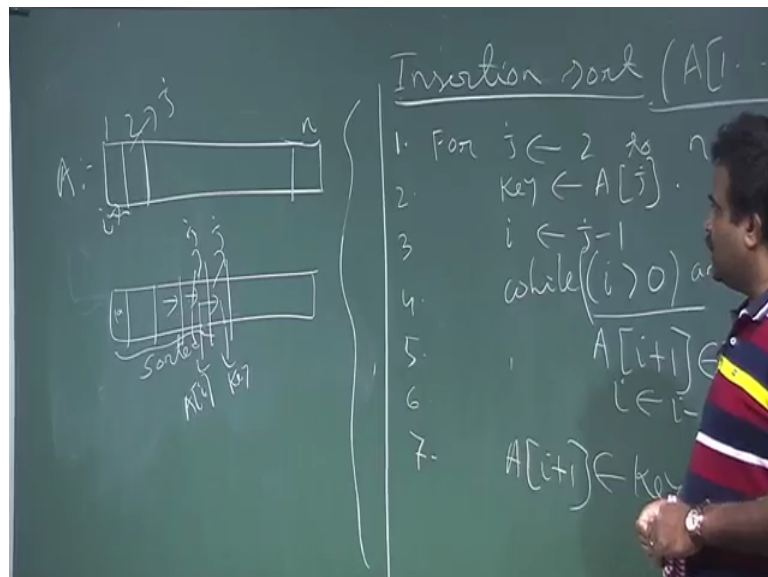 1 2 j n
A :-
i
i j
Sorted
A[i] Key
Insertion sort (A[1 . .
1. For j ← 2 to n
2. Key ← A[j] .
3 i ← j-1
4. while ((i > 0) an
5. A[i+1] ←
6 i ← i-
7. A[i+1] ← Key